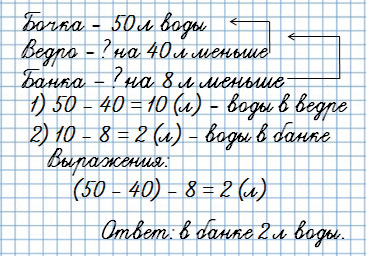 Бочка – 50 л воды
Ведро – ? на 40 л меньше
Банка – ? на 8 л меньше
1) 50 – 40 = 10 (л) – воды в ведре
2) 10 – 8 = 2 (л) – воды в банке
Выражения:
(50 – 40) – 8 = 2 (л)
Ответ: в банке 2 л воды.